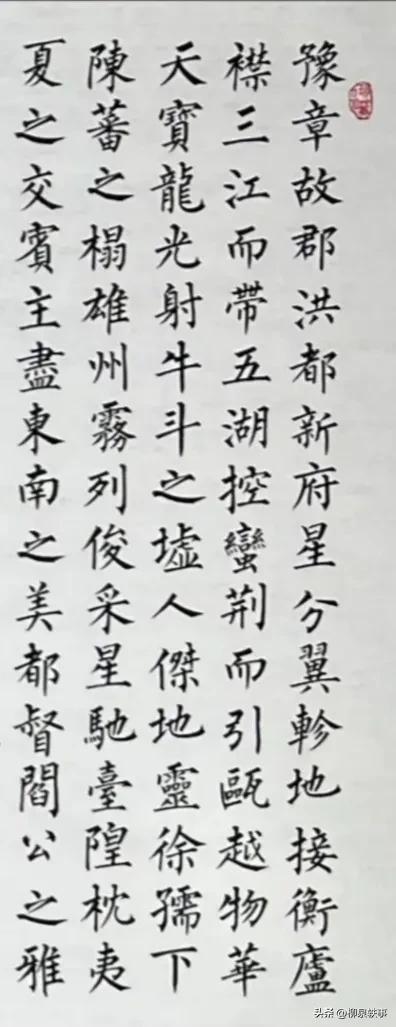 豫章故郡洪都新府星分翼軫地接衡廬
襟三江而帶五湖控蠻荆而引甌越物華
天寶龍光射牛斗之墟人傑地靈徐孺下
陳蕃之榻雄州霧列俊采星馳臺隍枕夷
夏之交賓主盡東南之美都督閻公之雅
头条 @柳泉轶事